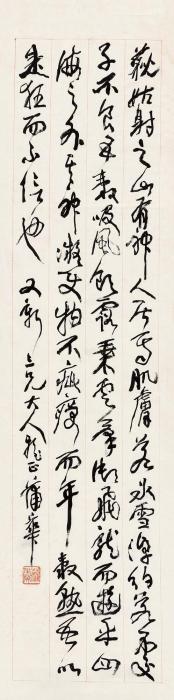 藐姑射之山有神人居焉肌膚若冰雪淖約若處
子不食五穀吸風飲露乘雲氣御飛龍而遊乎四
海之外其神凝使物不疵癘而年穀熟吾以
是狂而不信也 又新仁兄大人雅正 蒲華